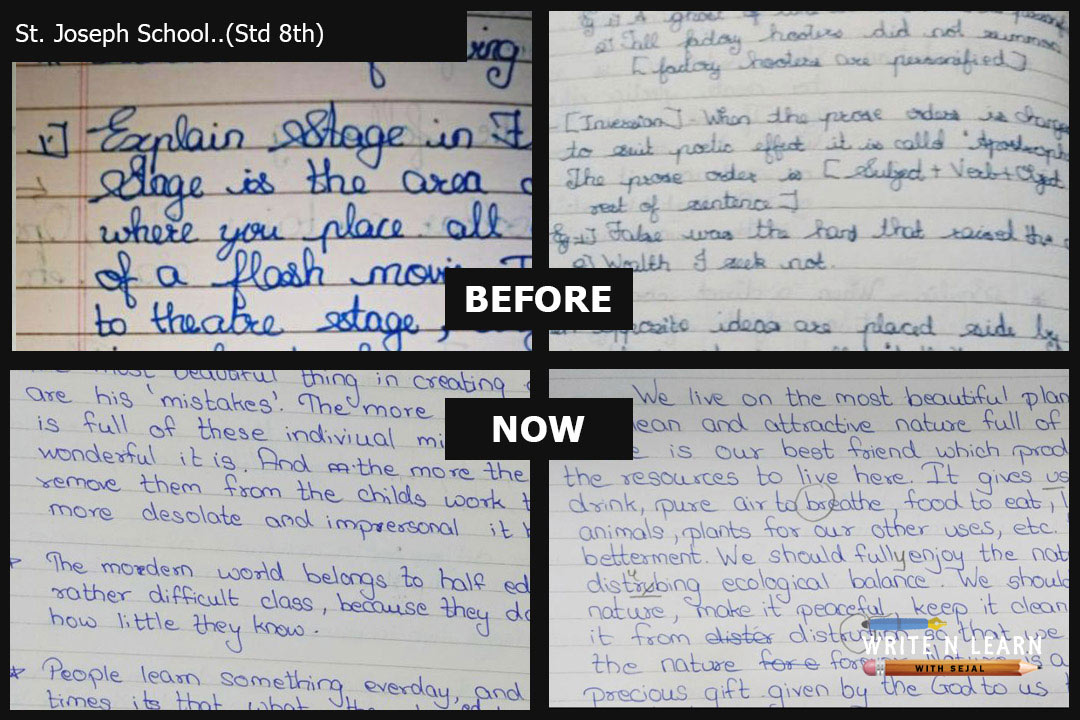 St. Joseph School..(Std 8th)
1] Explain Stage in
Stage is the area
where you place all
of a flash movie
to theatre stage,
2] Tall factory hooters did not
[factory hooters are personified]
[Inversion] - When the prose orders is
to suit poetic effect it is calld
The prose order is [Subject + Verb +
rest of sentence]
Eg - 1] False was the hand that raised the
2] Wealth I seek not.
BEFORE
opposite ideas are placed side by
most beautiful thing in creating
are his 'mistakes'. The more
is full of these indiviual
wonderful it is. And the more the
remove them from the childs work
more desolate and impresonal it
The mordern world belongs to half
rather difficult class, because they
how little they know.
* People learn something everday, and
times its that what
NOW
We live on the most beautiful
and attractive nature full of
is our best friend which
the resources to live here. It gives us
drink, pure air to breathe, food to eat,
animals, plants for our other uses, etc.
betterment. We should fully enjoy the
distrubing ecological balance. We
nature, make it peaceful, keep it clean
it from dister that we
the nature fore
precious gift given by the God to us
WRITE N LEARN
WITH SEJAL